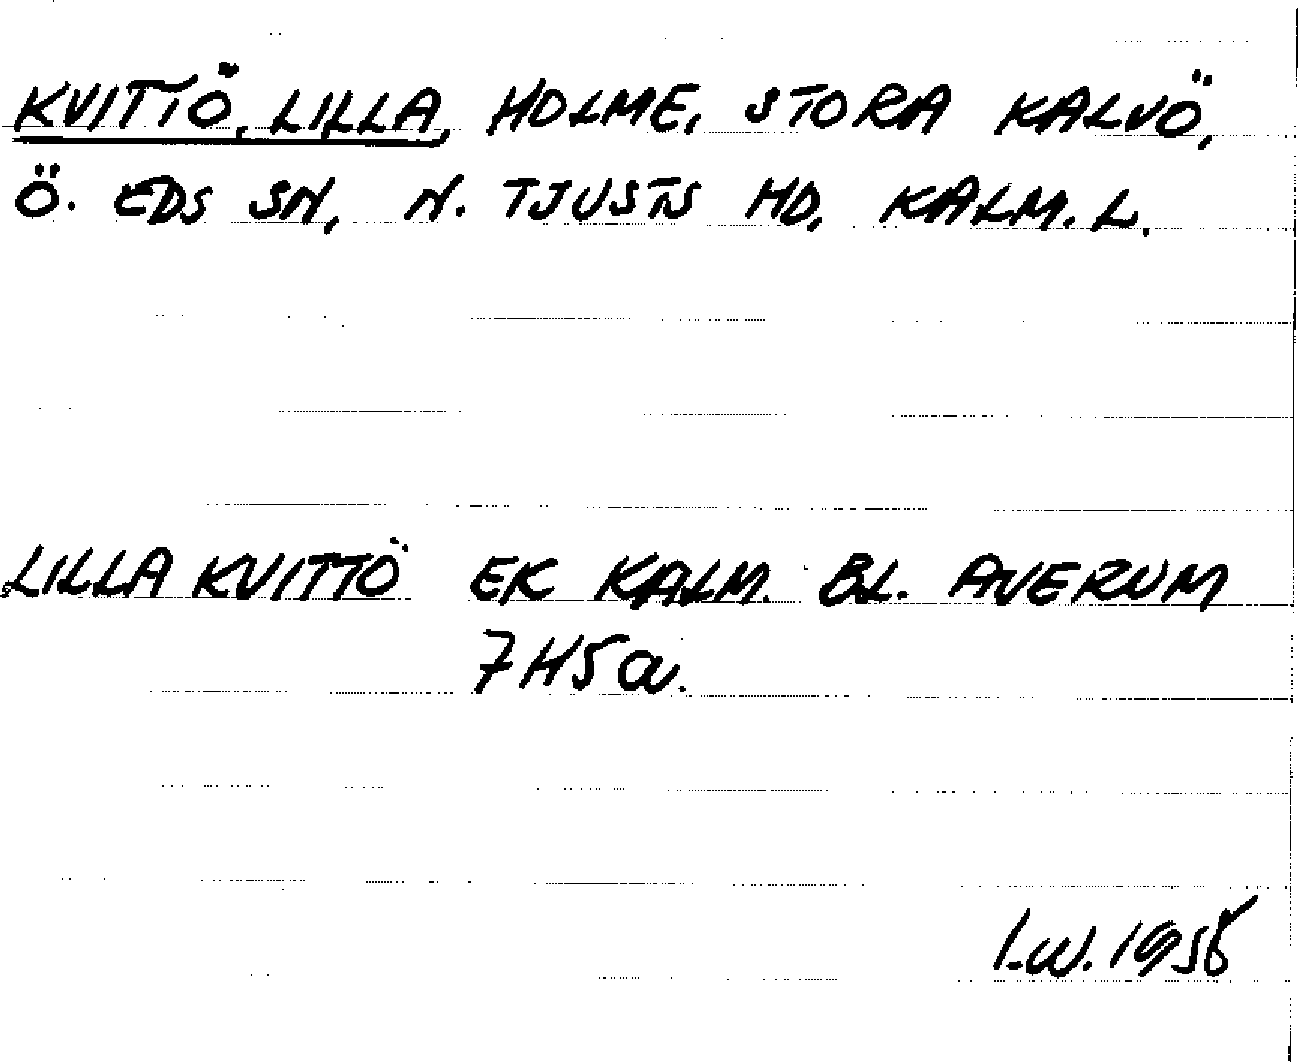 KVITTÖ, LILLA, HOLME, STORA KALVÖ,
Ö. EDS SN, N. TJUSTS HD, KALM. L.
LILLA KVITTÖ EK KALM. BL. AVERUM
7H5a.
I.W. 1958